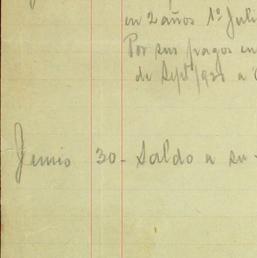 en 2 años 1º Juli
Por sus pagos en
de Sept 928 a
Junio 30 - Saldo a su -